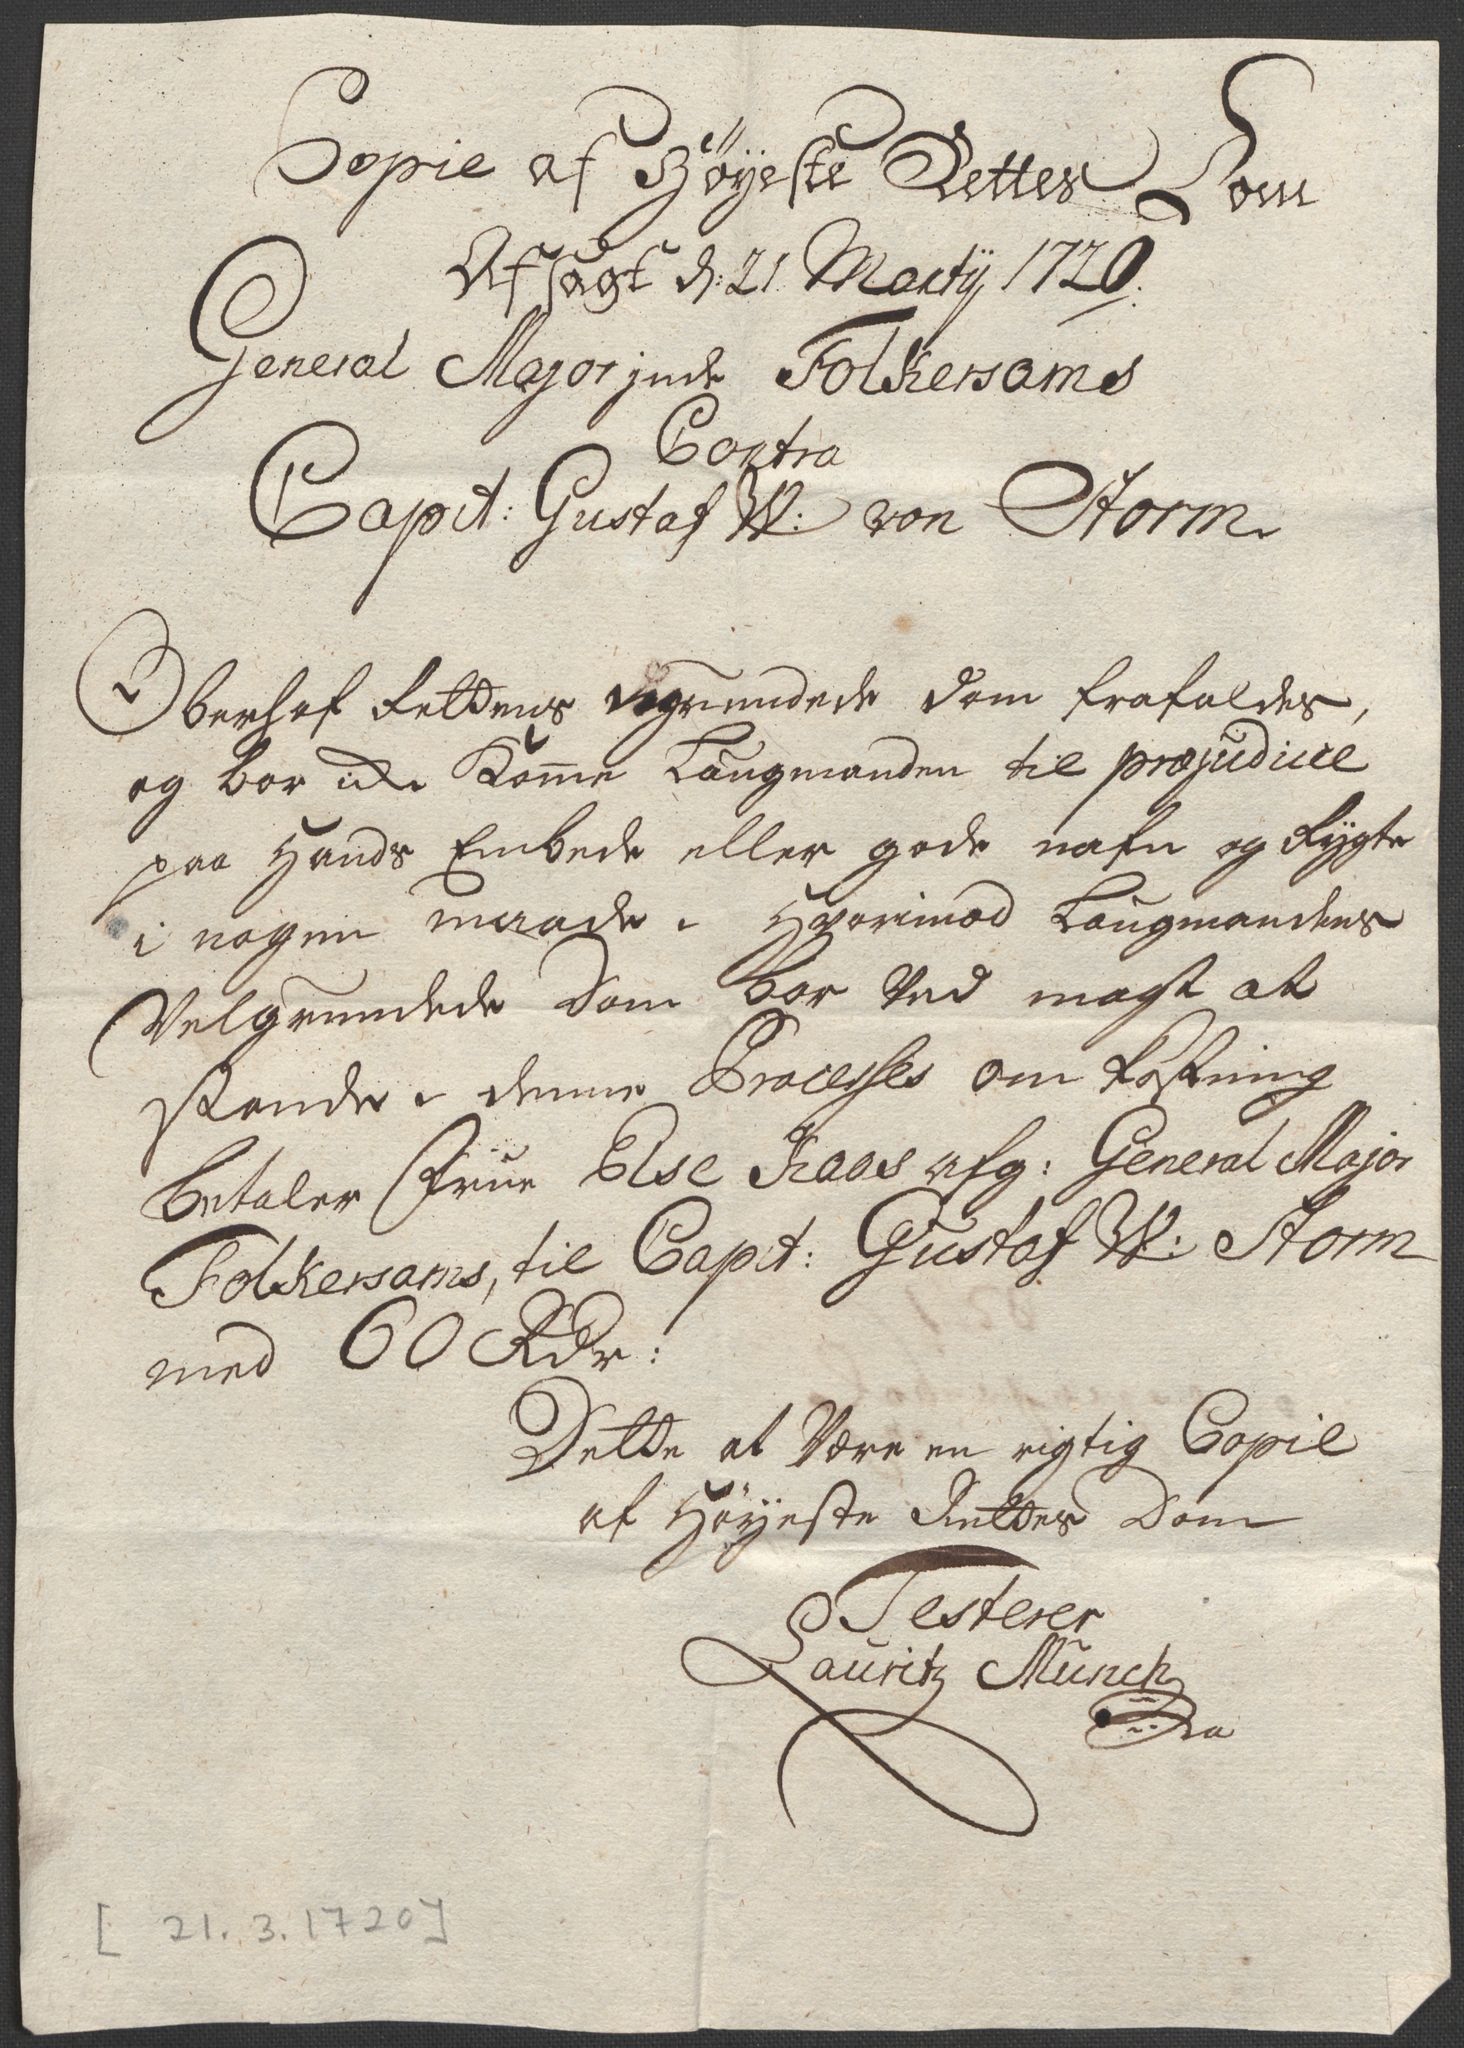 Copie af Høÿeste Rettes Dom
Afsagt d: 21 Martÿ 1720.
General Major inde Folkersams
Contra
Capit: Gustaf W: von Storm.
Oberhof Rettens ugrundede dom krafaldes,
og bør icke Komme Laugmanden til præjudice
paa Hands Embede eller gode nafn og Rÿgte
i nogen maade. Hvorimod Laugmandens
Velgrundede Dom bør Ved magt at
stande. denne Processes om kostning
betaler Frue Else Kaas afg: General Major
Folkersams, til Capit: Gustaf W: Storm
med 60 Rdr:
Dette at Være en rigtig Copie
af Høÿeste Rettes Dom
Testerer
Lauritz Münch
[ 21. 3. 1720]